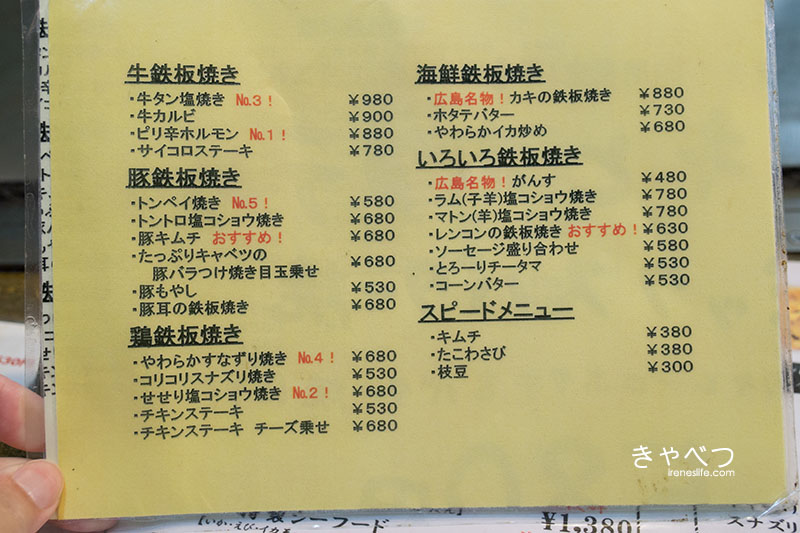 牛鉄板焼き
・牛タン塩焼き No.3! ¥980
・牛カルビ ¥900
・ピリ辛ホルモン No.1! ¥880
・サイコロステーキ ¥780
豚鉄板焼き
・トンペイ焼き No.5! ¥580
・トントロ塩コショウ焼き ¥680
・豚キムチ おすすめ! ¥680
・たっぷりキャベツの
豚バラつけ焼き目玉乗せ ¥680
・豚もやし ¥530
・豚耳の鉄板焼き ¥680
鶏鉄板焼き
・やわらかすなずり焼き No.4! ¥680
・コリコリスナズリ焼き ¥530
・せせり塩コショウ焼き No.2! ¥680
・チキンステーキ ¥530
・チキンステーキ チーズ乗せ ¥680
海鮮鉄板焼き
・広島名物!カキの鉄板焼き ¥880
・ホタテバター ¥730
・やわらかイカ炒め ¥680
いろいろ鉄板焼き
・広島名物!がんす ¥480
・ラム(子羊)塩コショウ焼き ¥780
・マトン(羊)塩コショウ焼き ¥780
・レンコンの鉄板焼き おすすめ! ¥630
・ソーセージ盛り合わせ ¥580
・とろーりチータマ ¥530
・コーンバター ¥530
スピードメニュー
・キムチ ¥380
・たこわさび ¥380
・枝豆 ¥300
きゃべつ
ireneslife.com
特製シーフード
¥1,380
スナズリ